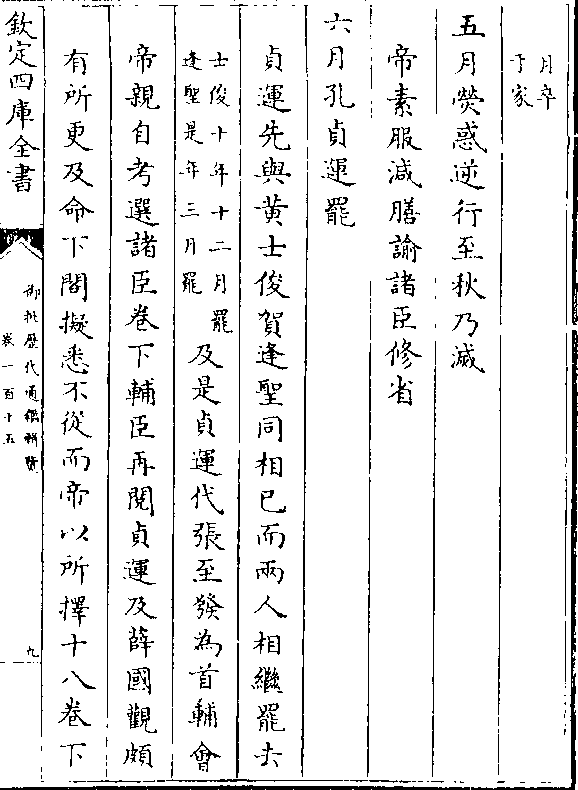 月卒
于家
五月熒惑逆行至秋乃滅
帝素服減膳諭諸臣修省
六月孔貞運罷
貞運先與黄士俊賀逢聖同相已而兩人相繼罷去
士俊十年十二月罷
逢聖是年三月罷
及是貞運代張至發為首輔會
帝親自考選諸臣卷下輔臣再閱貞運及薛國觀頗
有所更及命下閣擬悉不從而帝以所擇十八卷下
欽定四庫全書
御批歷代通鑑輯覽
卷一百十五
九